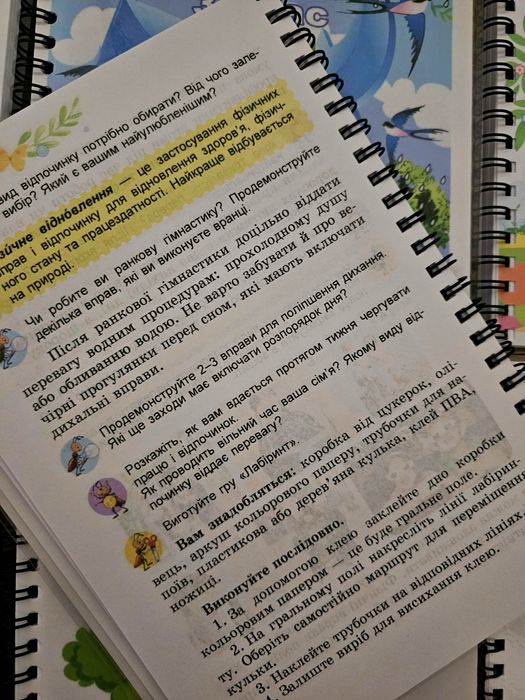 вид відпочинку потрібно обирати? Від чого зале-
вибір? Який є вашим найулюбленішим?
відновлення — це застосування фізичних
вправ і відпочинку для відновлення здоров'я, фізич-
ного стану та працездатності. Найкраще відбувається
на природі.
Чи робите ви ранкову гімнастику? Продемонструйте
декілька вправ, які ви виконуєте вранці.
Після ранкової гімнастики доцільно віддати
перевагу водним процедурам: прохолодному душу
або обливанню водою. Не варто забувати й про ве-
чірні прогулянки перед сном, які мають включати
дихальні вправи.
Продемонструйте 2–3 вправи для поліпшення дихання.
Які ще заходи має включати розпорядок дня?
Розкажіть, як вам вдається протягом тижня чергувати
працю і відпочинок.
Як проводить вільний час ваша сім'я? Якому виду від-
починку віддає перевагу?
Виготуйте гру «Лабіринт».
Вам знадобляться: коробка від цукерок, олі-
вець, аркуш кольорового паперу, трубочки для на-
поїв, пластикова або дерев'яна кулька, клей ПВА,
ножиці.
Виконуйте послідовно.
1. За допомогою клею заклейте дно коробки
кольоровим папером — це буде гральне поле.
2. На гральному полі накресліть лінії лабірин-
ту. Оберіть самостійно маршрут для переміщення
кульки.
3. Наклейте трубочки на відповідних лініях.
4. Залиште виріб для висихання клею.